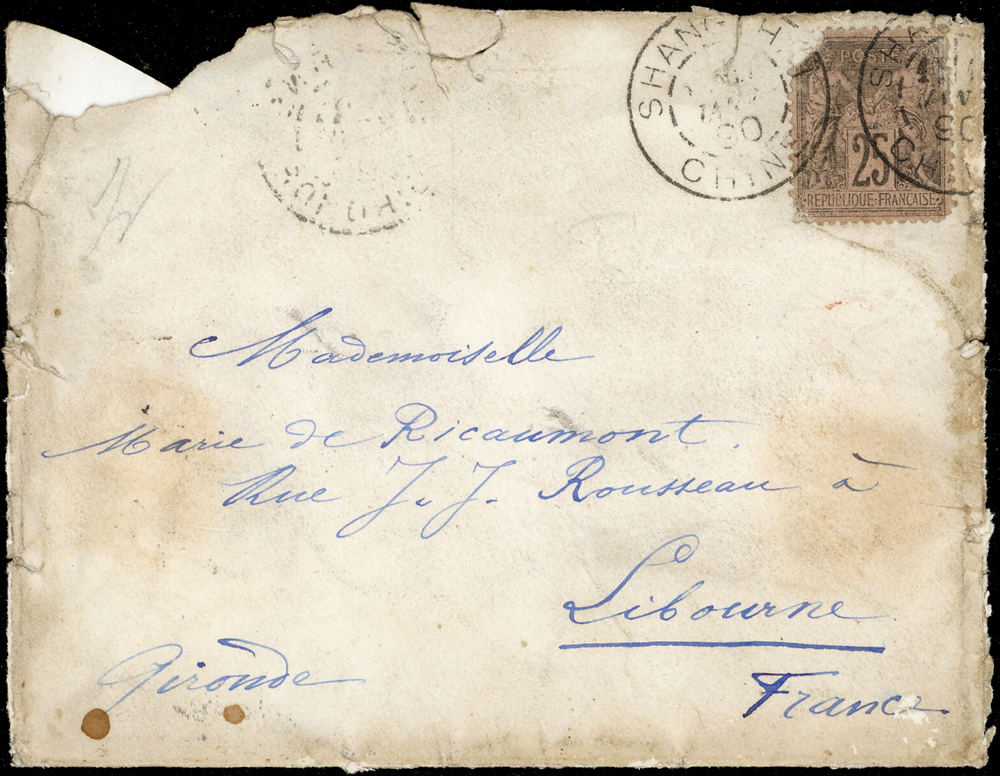 SHANG-HAI
JANV
90
CHINE
POSTES
25
REPUBLIQUE FRANÇAISE
SHANG
JANV
90
CH
Mademoiselle
Marie de Ricaumont.
Rue J. J. Rousseau à
Libourne
Gironde
France